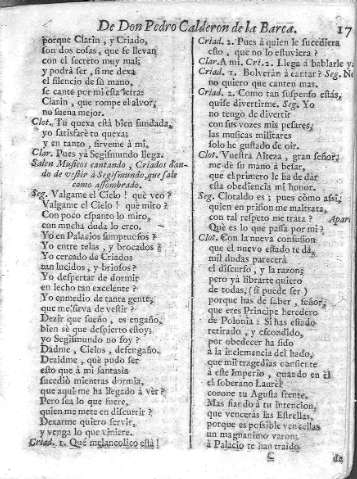 De Don Pedro Calderon de la Barca. 17
porque Clarin, y Criado,
son dos cosas, que se llevan
con el secreto muy mal;
y podrá ser, si me dexa
el silencio de su mal,
se cante por mi esta letra:
Clarin, que rompe el alvor,
no suena mejor.
Clot. Tu quexa está bien fundada,
yo satisfaré tu quexa;
y en tanto, sirveme á mi.
Clar. Pues ya Segismundo llega.
Salen Musicos cantando, y Criados dan-
do de vestir à Segismundo, que sale
como assombrado.
Seg. Valgame el Cielo! què veo?
Valgame el Cielo! què miro?
Con poco espanto lo miro,
con mucha duda lo creo.
Yo en Palacios sumptuosos?
Yo entre telas, y brocados?
Yo cercado de Criados
tan lucidos, y briosos?
Yo despertar de dormir
en lecho tan excelente?
Yo enmedio de tanta gente,
que me sirva de vestir?
Dezir que sueño, es engaño,
bien sè que despierto estoy;
yo Segismundo no soy?
Dadme, Cielos, desengaño.
Dezidme, què pudo ser
esto que á mi fantasia
sucediò mientras dormia,
que aqui me ha llegado á ver?
Pero sea lo que fuere,
quien me mete en discurrir?
Dexarme quiero servir,
y venga lo que viniere.
Criad. 1. Què melancolico està!
Criad. 2. Pues à quien le sucediera
esto, que no lo estuviera?
Clar. A mi. Cri. 2. Llega á hablarle y.
Criad. 1. Bolverán à cantar? Seg. No
no quiero que canten mas.
Criad. 2. Como tan suspenso estás,
quise divertirme. Seg. Yo
no tengo de divertir
con sus vozes mis pesares,
las musicas militares
solo he gustado de oir.
Clot. Vuestra Alteza, gran señor,
me dè su mano à besar,
que el primero le ha de dar
esta obediencia mi honor.
Seg. Clotaldo es; pues còmo assi,
quien en prision me maltrata,
con tal respeto me trata? Apar
Què es lo que passa por mi?
Clot. Con la nueva confusion
que el nuevo estado te dá,
mil dudas parecerá
el discurso, y la razon;
pero yà librarte quiero
de todas, (si puede ser)
porque has de saber, señor,
que eres Principe heredero
de Polonia: Si has estado
retirado, y escondido,
por obedecer ha sido
à la inclemencia del hado,
que mil tragedias consiente
à este Imperio, quando en èl
el soberano Laurel
corone tu Agusta frente.
Mas fiando á tu intencion,
que vencerás las Estrellas,
porque es possible vencellas
un magnanimo varon;
à Palacio te han traido
C
de